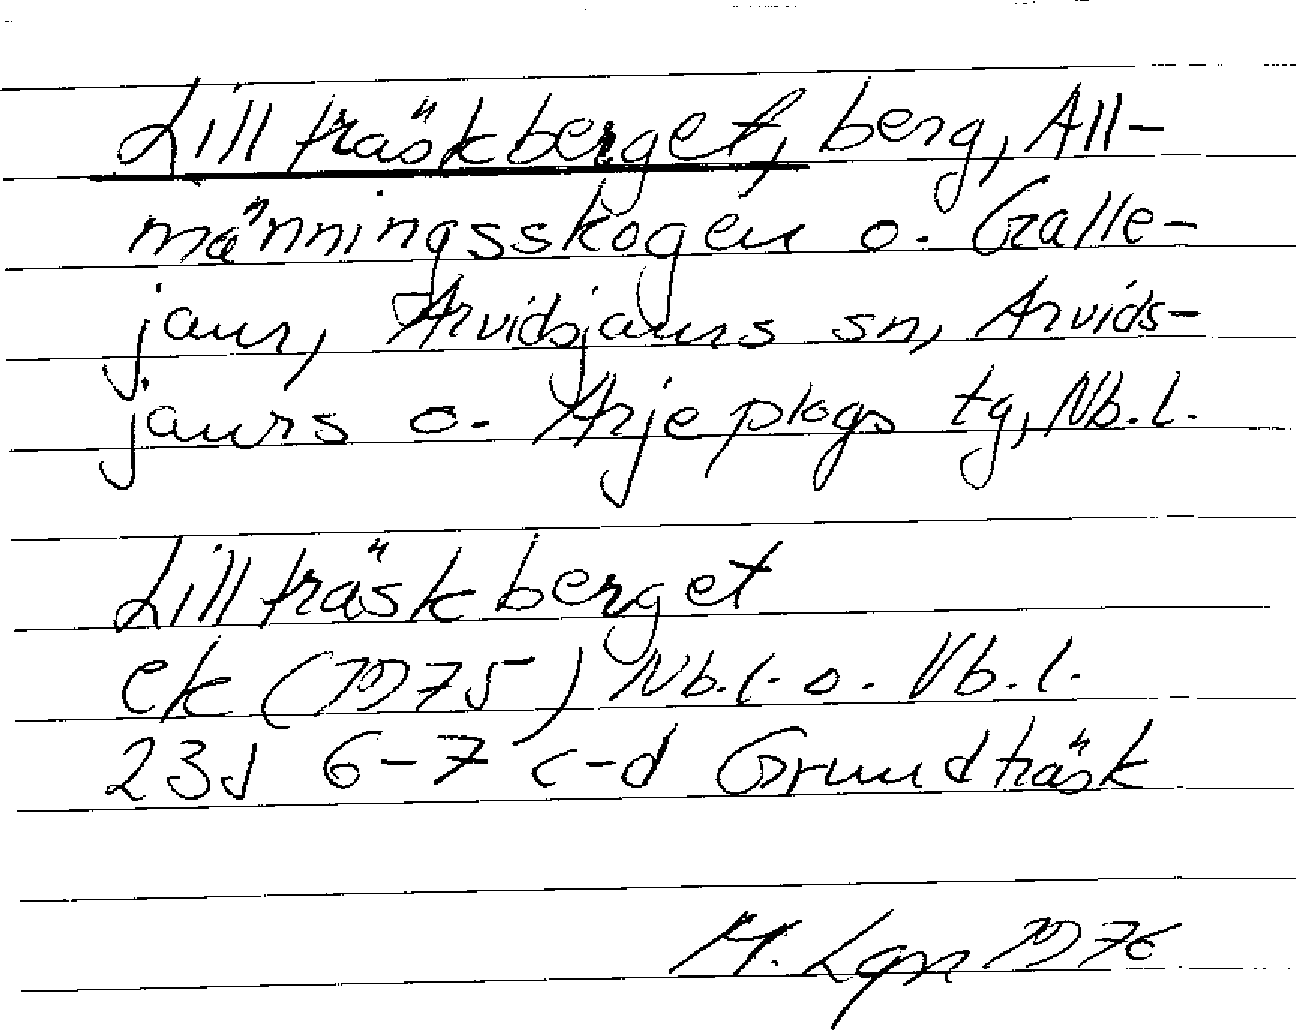 Lillträskberget, berg, All-
männingsskogen o. Galle-
jaur, Arvidsjaurs sn, Arvids-
jaurs o. Arjeplogs tg, Nb.l.
Lillträskberget
ek (1975) Nb.l. o. Vb.l.
23J 6-7 c-d Grundträsk
1976